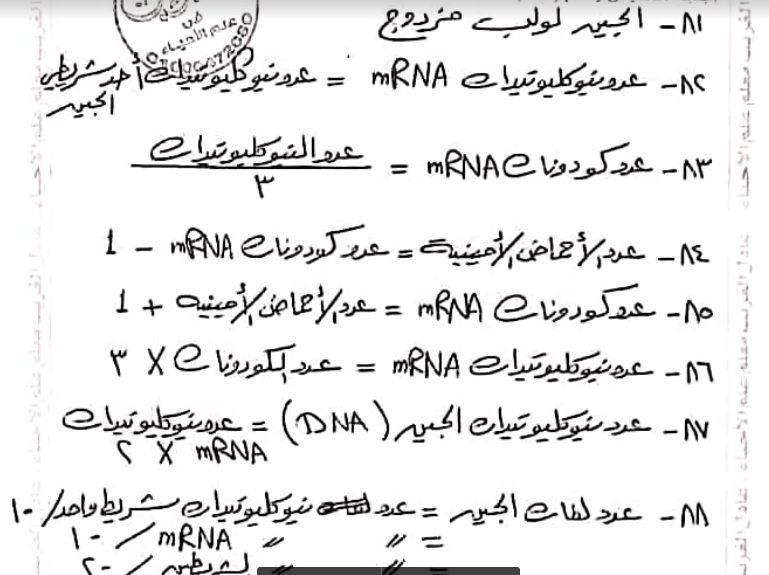 في
علم الأحياء
٨١- الجين لولب مزدوج
٨٢- عدد نيوكليوتيدات mRNA = عدد نيوكليوتيدات أحد شريطي
الجين
٨٣- عدد كودونات mRNA = عدد النيوكليوتيدات
٣
٨٤- عدد الأحماض الأمينية = عدد كودونات mRNA - 1
٨٥- عدد كودونات mRNA = عدد الأحماض الأمينية + 1
٨٦- عدد نيوكليوتيدات mRNA = عدد الكودونات X ٣
٨٧- عدد نيوكليوتيدات الجين (DNA) = عدد نيوكليوتيدات
mRNA X ٢
٨٨- عدد لفات الجين = عدد نيوكليوتيدات شريط واحد / ١٠
= 〃 〃 mRNA / ١٠
= 〃 〃 لشريطين / ٢٠